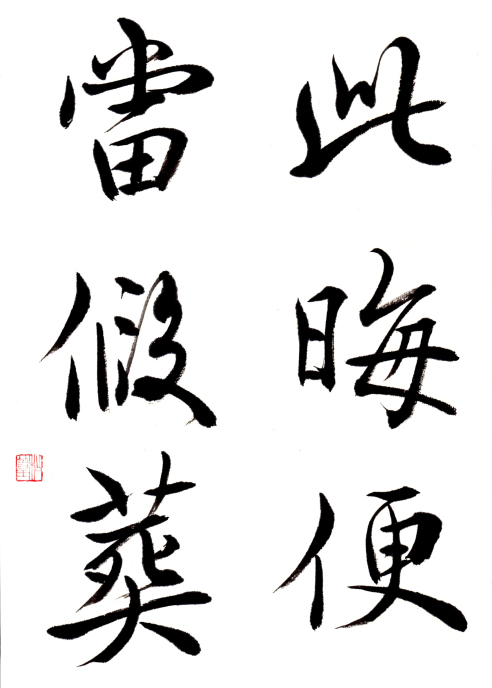 此晦便
當假葬